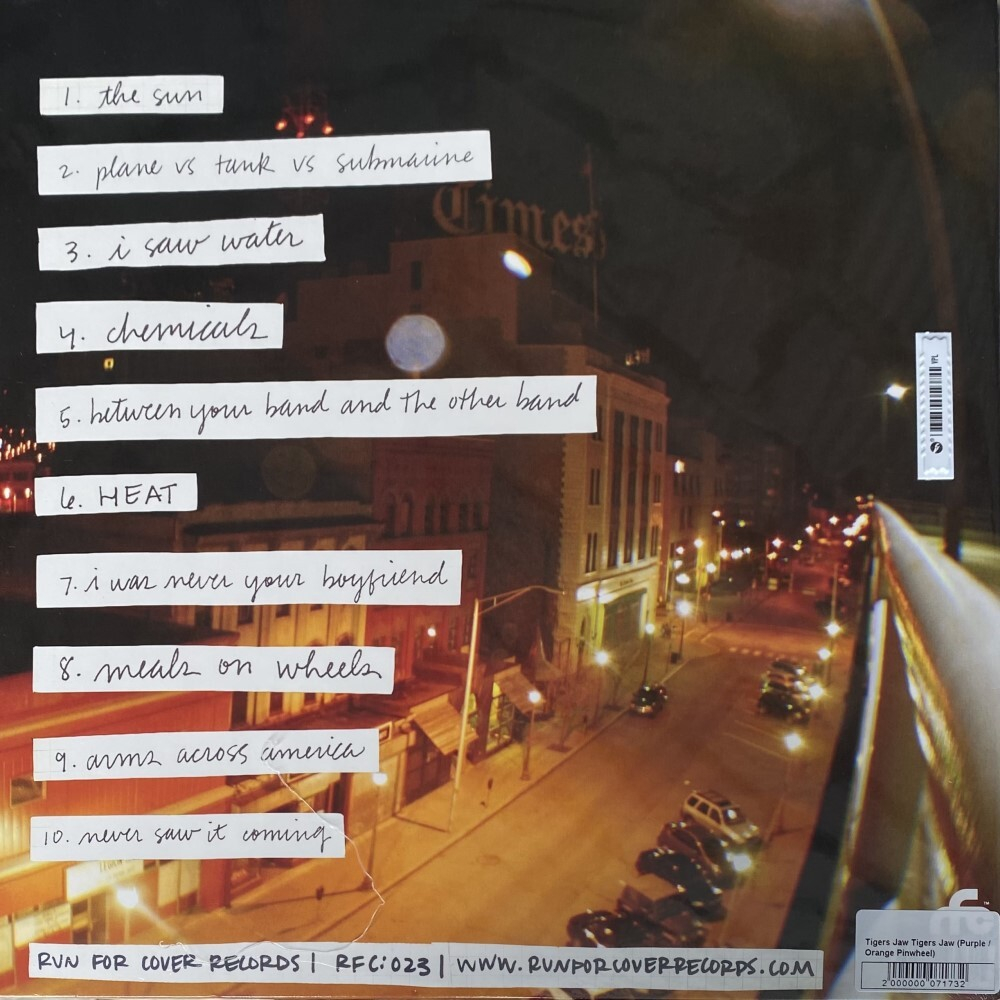 1. the sun
2. plane vs tank vs submarine
Times
3. i saw water
4. chemicals
5. between your band and the other band
6. HEAT
7. i was never your boyfriend
8. meals on wheels
9. arms across america
10. never saw it coming
RUN FOR COVER RECORDS | RFC:023 | WWW.RUNFORCOVERRECORDS.COM
rfc™
Tigers Jaw Tigers Jaw (Purple /
Orange Pinwheel)
2 000000 071732